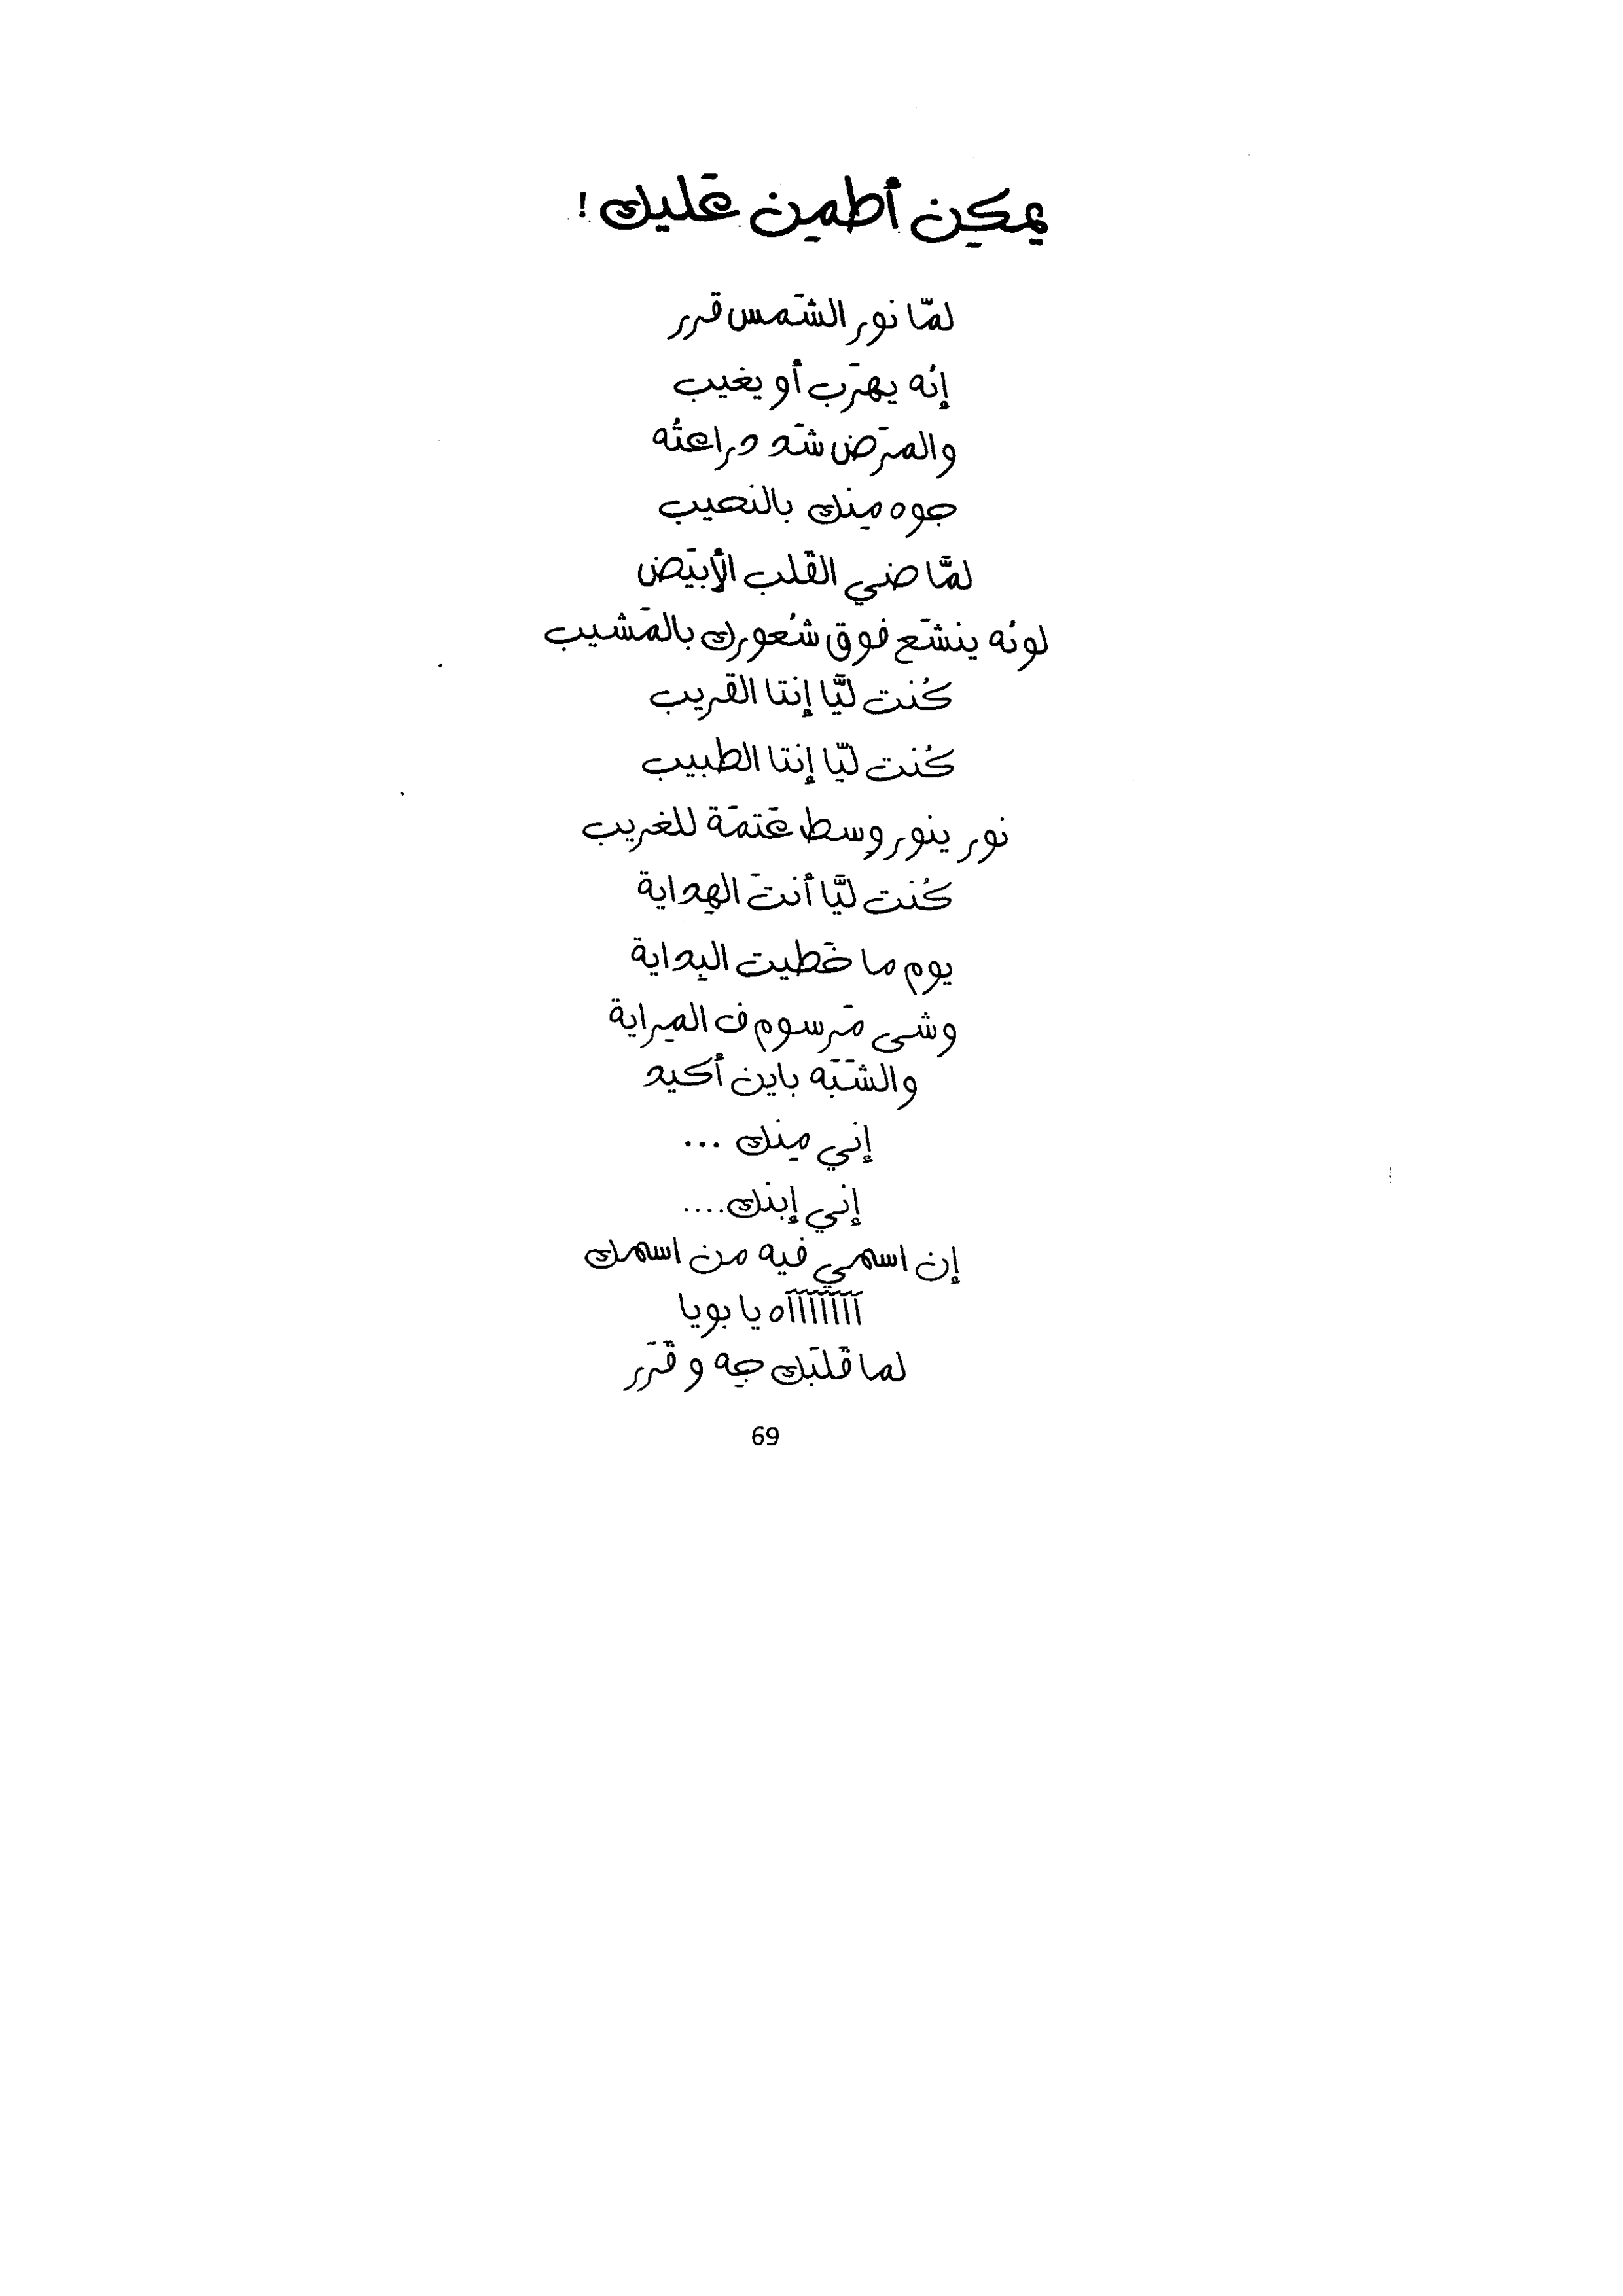 يمكِن أطمِن عَليك!
لمَّا نور الشَمس قرر
إنُه يهرَب أو يغيب
والمرَض شَد دراعتُه
جوه مِنك بالنحيب
لمَّا ضي القَلب الأبيَض
لونُه ينشَع فوق شُعورك بالمَشيب
كُنت ليَّا إنتا القريب
كُنت ليَّا إنتا الطبيب
نور ينور وِسط عَتمَة للغريب
كُنت ليَّا أنتَ الهِداية
يوم ما خَطيت البِداية
وشى مَرسوم ف المِراية
والشَبَه باين أكيد
إني مِنك ...
إني إبنك....
إن اسمي فيه من اسمك
آآآآآآآه يا بويا
لما قَلبَك جِه و قَرَر
69